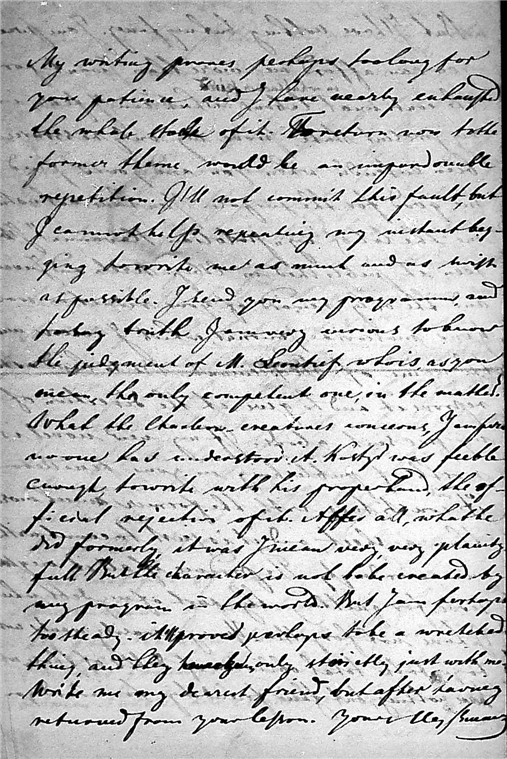 My writing proves perhaps too long for
your patience and I have nearly exhausted
the whole stock of it. To return now to the
former theme would be an unpardonable
repetition. I'll not commit this fault, but
I cannot help repeating my instant beg-
ging to write me as much and as swift
as possible. I send you my programm, and
to say truth I am very to know
the judgment of M. Leontief, who is, as you
mean, the only competent one, in the matter.
What the creatures concerns, I am
no one has understood it was feeble
enough to write with his proper hand, the of-
ficial rejection of it. After all, what he
did formerly, it was I mean very, very plainty-
full But the character is not to be created by
any program in the world. But I am perhaps
too steady. it proved perhaps to be a wretched
thing, and they only strictly just with me.
Write me my dearest friend, but after having
returned from your lesson. Yours